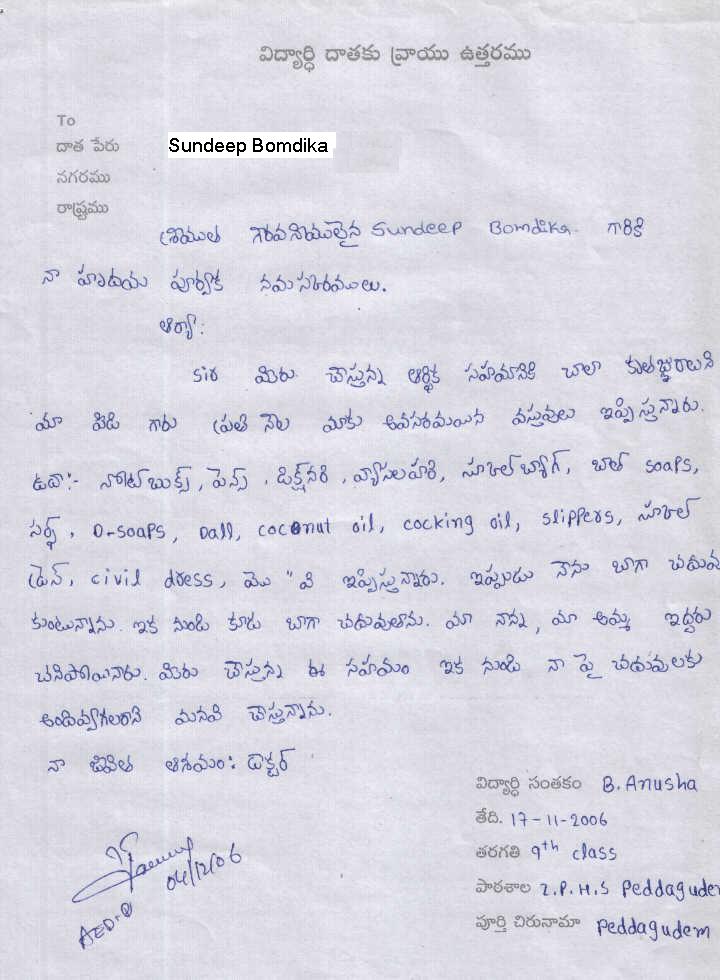 విద్యార్థి దాతకు వ్రాయు ఉత్తరము
To
దాత పేరు Sundeep Bomdika
నగరము
రాష్ట్రము
శ్రీయుత గౌరవనీయులైన Sundeep Bomdika. గారికి
నా హృదయ పూర్వక నమస్కారములు.
ఆర్యా:
sir మీరు చేస్తున్న ఆర్థిక సహయానికి చాలా కృతజ్ఞురాలుని
మా పిడి గారు ప్రతి నెల మాకు అవసరమయిన వస్తువులు ఇప్పిస్తున్నారు.
ఉదా:- నోట్‌బుక్స్, పెన్స్, డిక్ష్‌నరి, వ్యాసలహరి, స్కూల్‌బ్యాగ్, బాత్ soaps,
సర్ఫ్, D-soaps, Dall, coconut oil, cocking oil, slippers, స్కూల్
డ్రెస్, civil dress, మొ "వి ఇప్పిస్తున్నారు. ఇప్పుడు నేను బాగా చదువు
కుంటున్నాను. ఇక నుండి కూడ బాగా చదువుతాను. మా నాన్న, మా అమ్మ ఇద్దరు
చనిపోయినారు. మీరు చేస్తున్న ఈ సహయం ఇక నుండి నా పై చదువులకు
అందివ్వగలరాని మనవి చేస్తున్నాను.
నా జీవిత ఆశయం: డాక్టర్
విద్యార్ధి సంతకం B. Anusha
తేది. 17-11-2006
తరగతి 9th class
పాఠశాల Z.P.H.S Peddagudem
పూర్తి చిరునామా Peddagudem
04/12/06